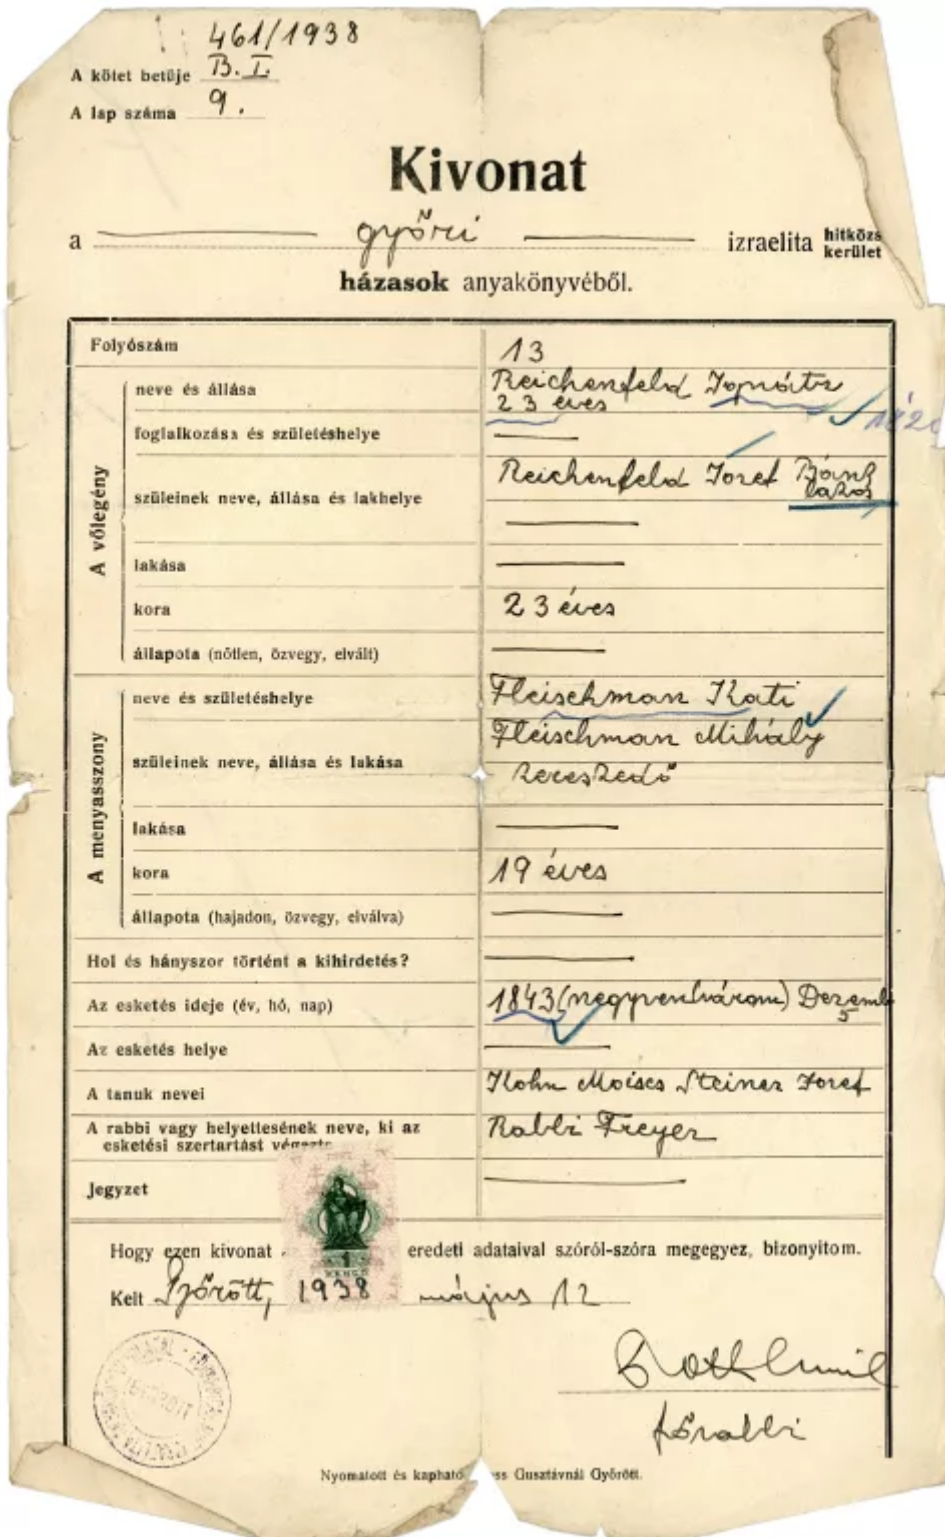 461/1938
A kötet betűje B. I.
A lap száma 9.
Kivonat
a győri izraelita hitközs
kerület
házasok anyakönyvéből.
Folyószám 13
A vőlegény
neve és állása Reichenfeld Ignátz
23 éves
foglalkozása és születéshelye
szüleinek neve, állása és lakhelye Reichenfeld Josef
lakos
lakása
kora 23 éves
állapota (nőtlen, özvegy, elvált)
A menyasszony
neve és születéshelye Fleischman Kati
szüleinek neve, állása és lakása Fleischman Mihály
kereskedő
lakása
kora 19 éves
állapota (hajadon, özvegy, elválva)
Hol és hányszor történt a kihirdetés?
Az esketés ideje (év, hó, nap) 1843 (negyvenhárom) Dezemb
5
Az esketés helye
A tanuk nevei Kohn Moises Steiner Josef
A rabbi vagy helyettesének neve, ki az Rabbi Freyer
esketési szertartást végezte
Jegyzet
Hogy ezen kivonat eredeti adataival szóról-szóra megegyez, bizonyitom.
1
PENGŐ
Kelt Győrött, 1938 május 12
Roth Emil
főrabbi
Nyomatott és kapható ss Gusztávnál Győrött.